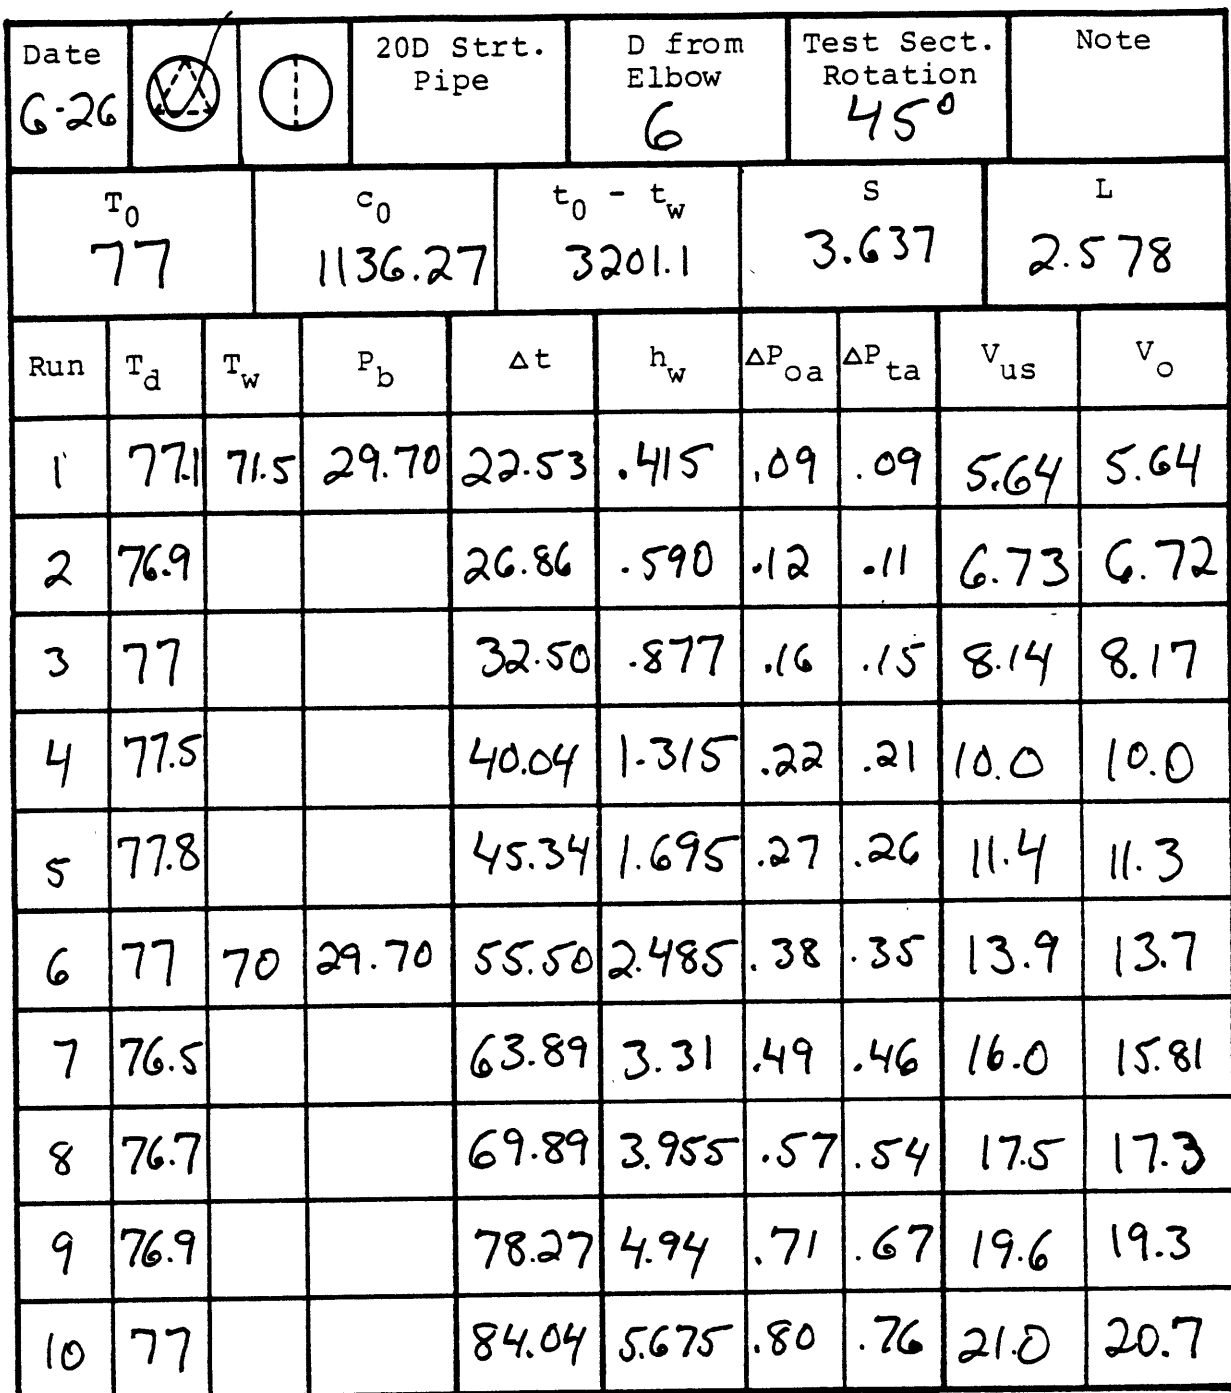 Date 20D Strt. D from Test Sect. Note
Pipe Elbow Rotation
6-26 6 45°
T0 c0 t0 - tw S L
77 1136.27 3201.1 3.637 2.578
Run Td Tw Pb Δt hw ΔPoa ΔPta Vus Vo
1 77.1 71.5 29.70 22.53 .415 .09 .09 5.64 5.64
2 76.9 26.86 .590 .12 .11 6.73 6.72
3 77 32.50 .877 .16 .15 8.14 8.17
4 77.5 40.04 1.315 .22 .21 10.0 10.0
5 77.8 45.34 1.695 .27 .26 11.4 11.3
6 77 70 29.70 55.50 2.485 .38 .35 13.9 13.7
7 76.5 63.89 3.31 .49 .46 16.0 15.81
8 76.7 69.89 3.955 .57 .54 17.5 17.3
9 76.9 78.27 4.94 .71 .67 19.6 19.3
10 77 84.04 5.675 .80 .76 21.0 20.7